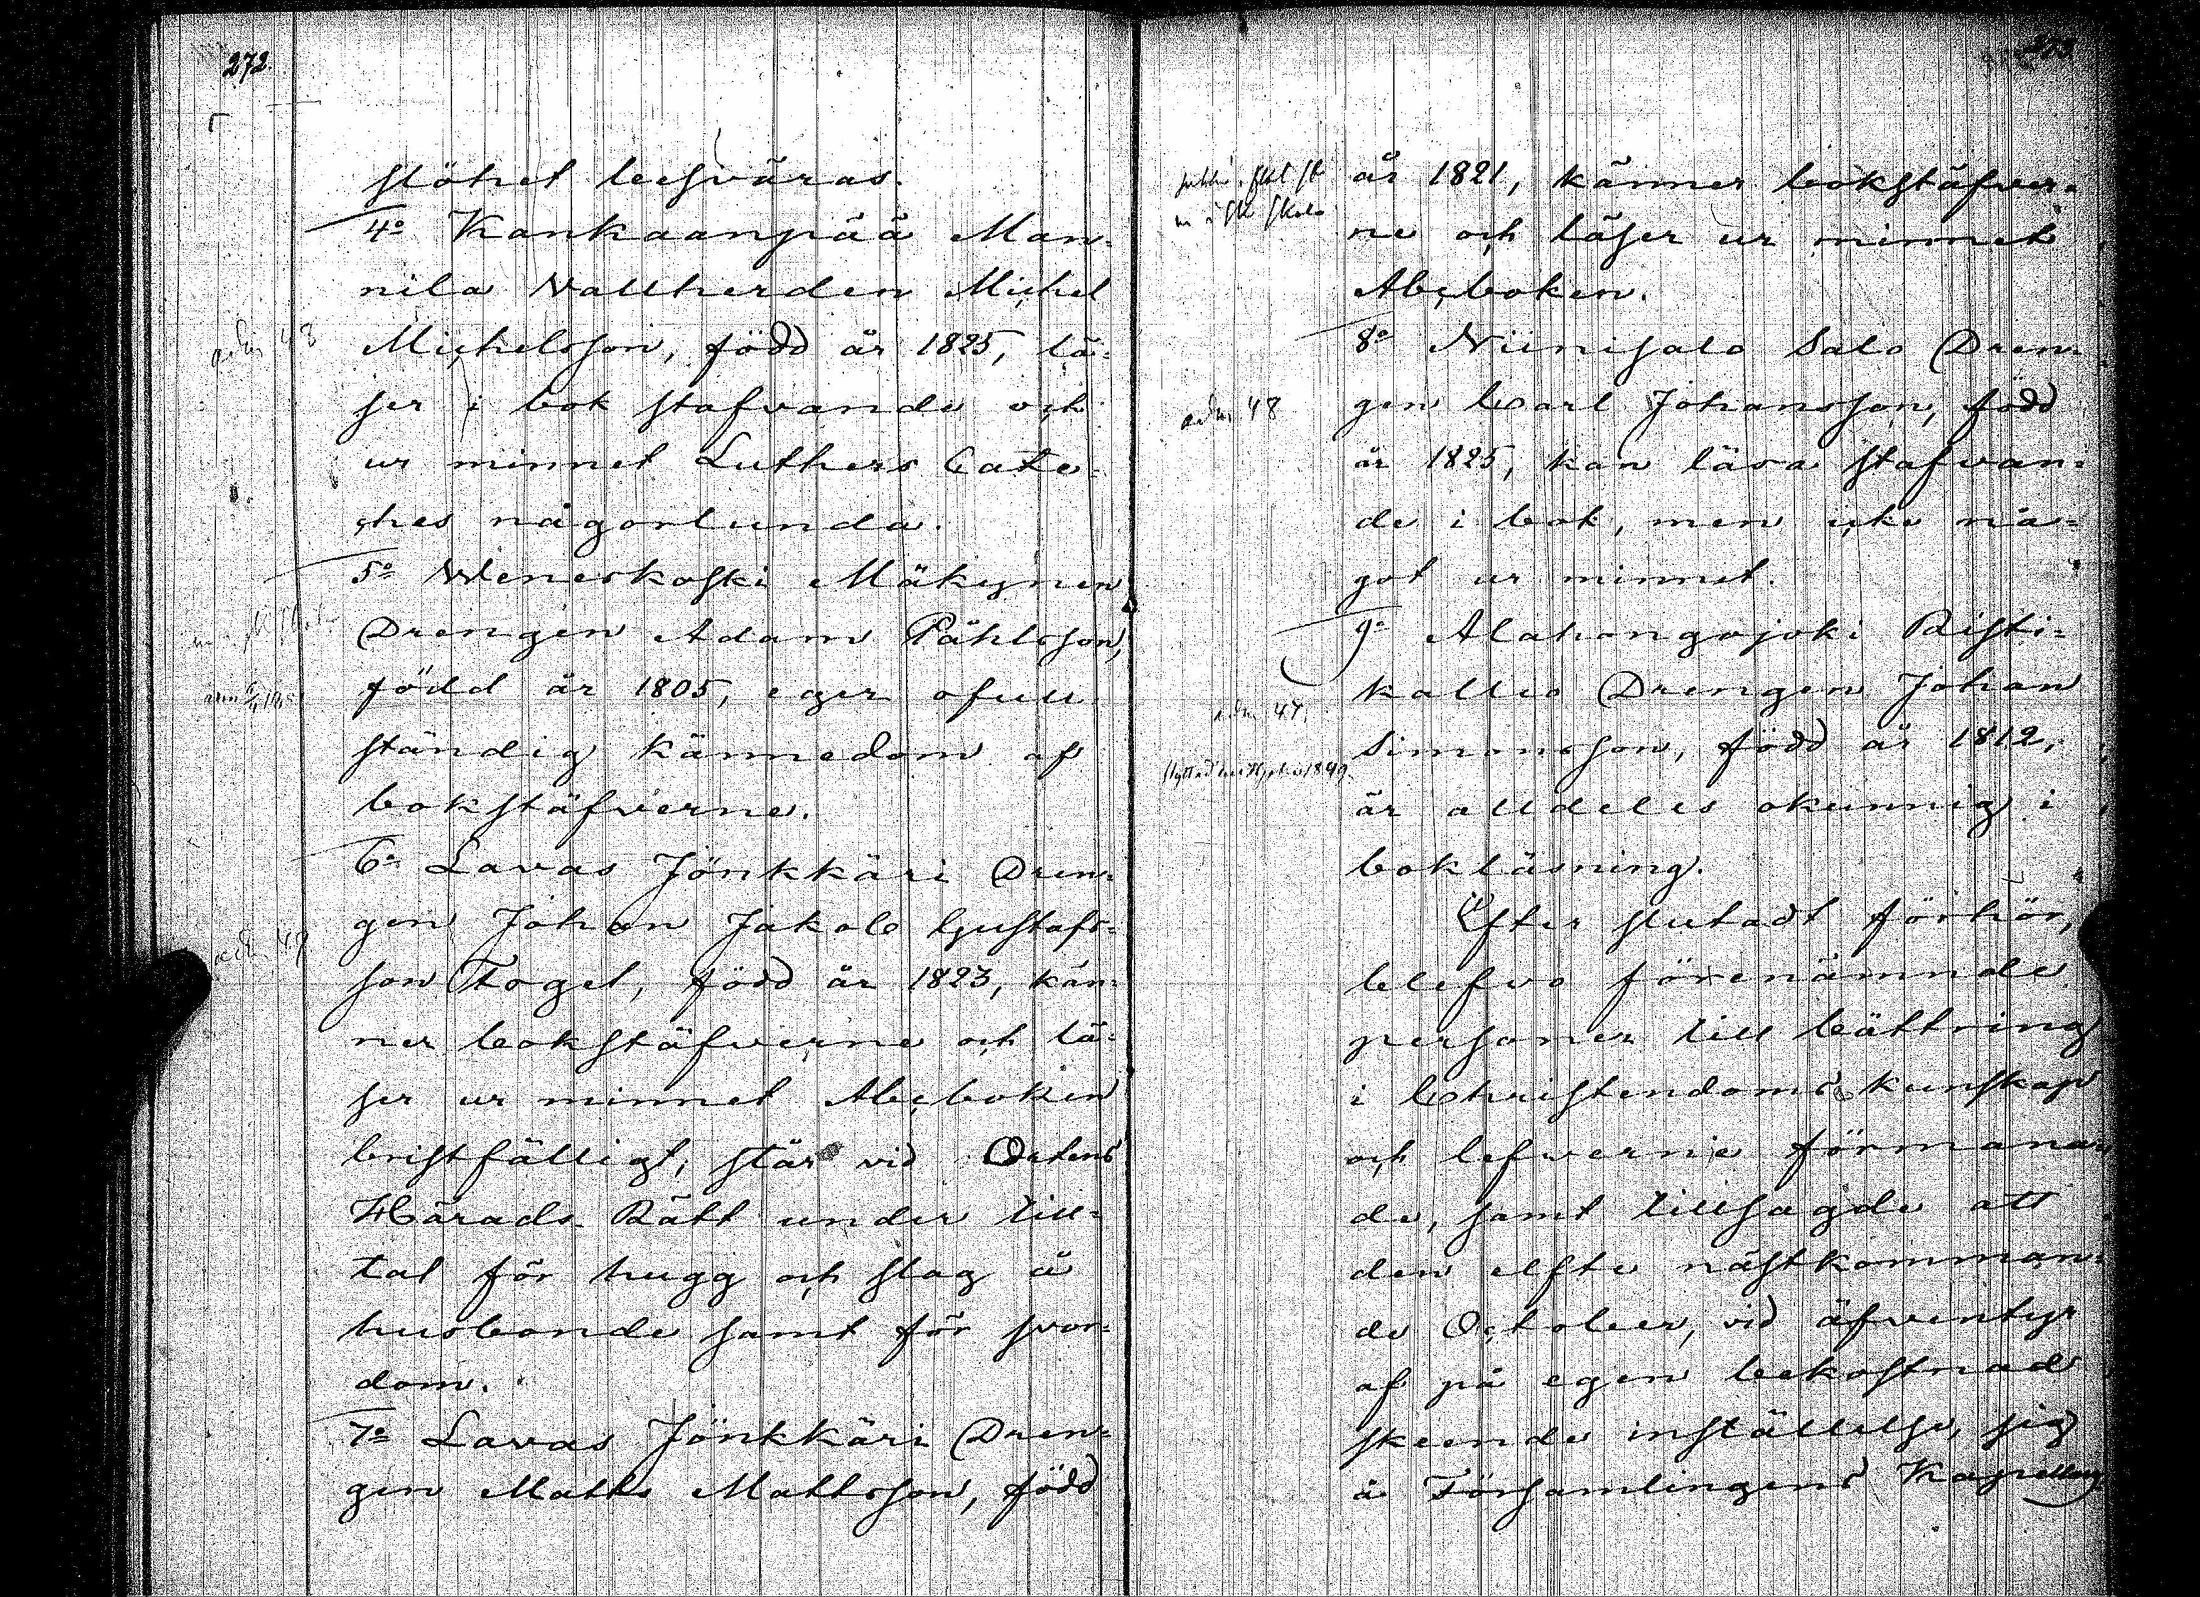 272.
slöhet besväras.
4o Kankaanpää Man=
nila Vallherden Michel
adm 48
Michelsson, född år 1825, lä=
ser i bok stafvande och
ur minnet Luthers Cate=
ches någorlunda.
5o Weneskoski Mäkynen
Drengen Adam Påhlsson,
född år 1805, eger ofull
ständig kännedom af
bokstäfverne.
6o Lavas Jönkkäri Dren=
gen Johan Jakob Gustafs=
adm 49
son Fogel, född år 1823, kän=
ner bokstäfverne och lä=
ser ur minnet Abcboken
bristfälligt; står vid Ortens
Härads Rätt under till=
tal för hugg och slag å
husbonde samt för svor=
dom.
7o Lavas Jönkkäri Dren=
gen Matts Mattsson, född
273
år 1821, känner bokstäfver=
ne och läser ur minnet
Abcboken.
8o Niinisalo Salo Dren=
adm 48
gen Carl Johansson, född
år 1825, kan läsa stafvan=
de i bok, men icke nå=
got ur minnet.
9o Alahongojoki Risti=
kallio Drengen Johan
adm 47.
Simonsson, född år 1812,
är alldeles okunnig i
bokläsning.
Efter slutadt förhör,
blefvo förenämnde
personer till bättring
i Christendoms kunskap
och lefverne förmana=
de, samt tillsagde att
den elfte nästkomman=
de October, vid äfventyr
af på egen bekostnad
skeende inställelse, sig
å Församlingens